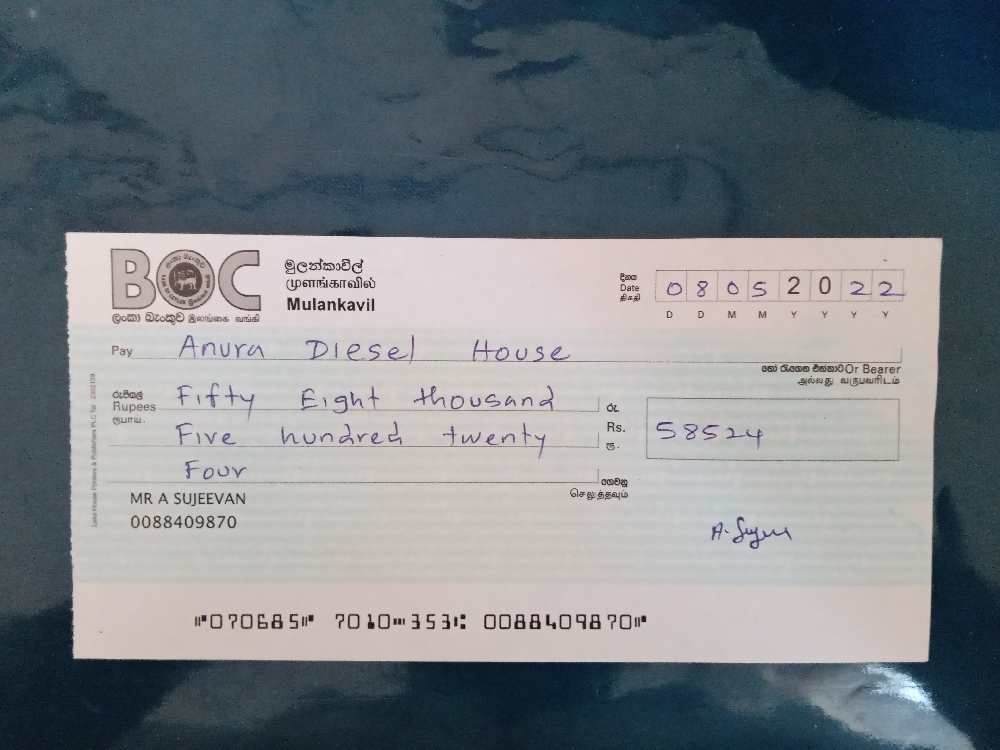 BOC
ලංකා බැංකුව இலங்கை வங்கி
මුලන්කාවිල්
முளங்காவில்
Mulankavil
දිනය
Date
திகதி
0 8 0 5 2 0 2 2
D D M M Y Y Y Y
Pay Anura Diesel House
හෝ රැගෙන එන්නාට Or Bearer
அல்லது வருபவரிடம்
රුපියල්
Rupees
ரூபாய்.
Fifty Eight thousand
Five hundred twenty
Four
රු.
Rs.
ரூ.
58524
ගෙවනු
செலுத்தவும்
MR A SUJEEVAN
0088409870
Lake House Printers & Publishers PLC
⑈070685⑈ 7010⑉353⑆ 0088409870⑈